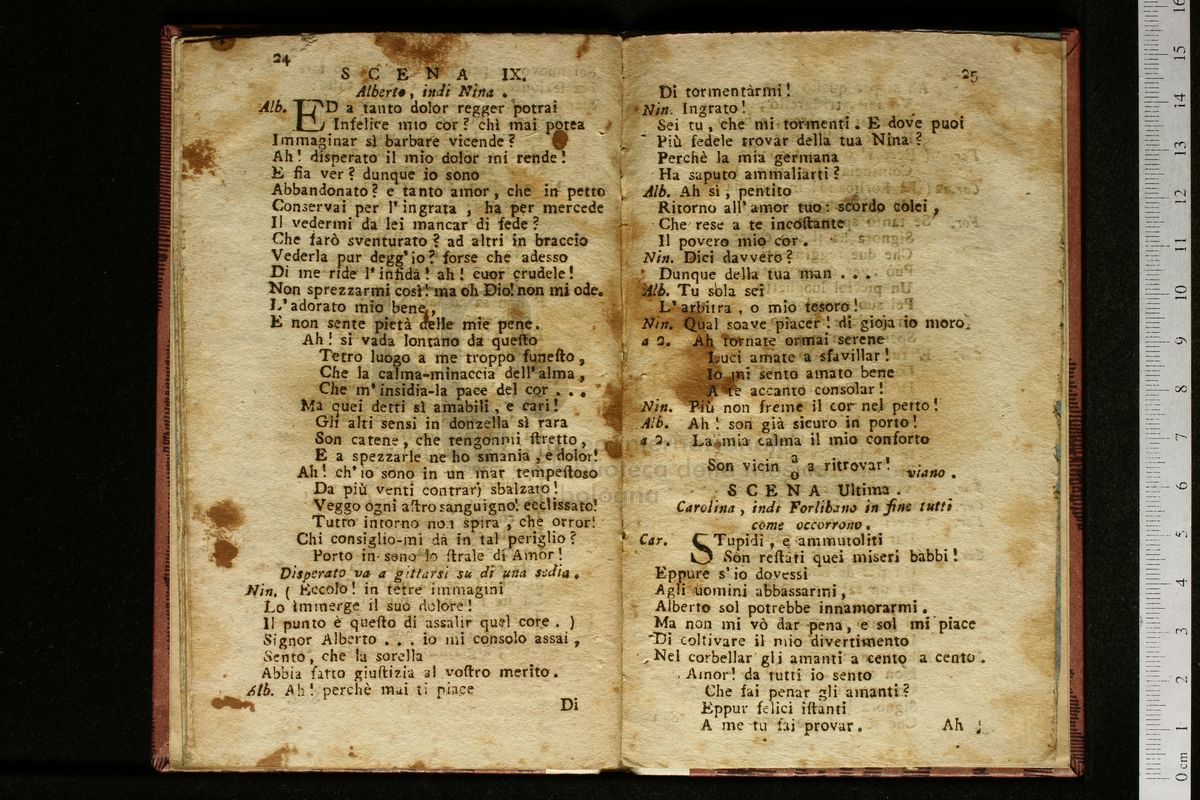 24
SCENA IX.
Alberto, indi Nina.
Alb. ED a tanto dolor regger potrai
Infelice mio cor? chi mai potea
Immaginar sì barbare vicende?
Ah! disperato il mio dolor mi rende!
E fia ver? dunque io sono
Abbandonato? e tanto amor, che in petto
Conservai per l'ingrata, ha per mercede
Il vedermi da lei mancar di fede?
Che farò sventurato? ad altri in braccio
Vederla pur degg'io? forse che adesso
Di me ride l'infida! ah! cuor crudele!
Non sprezzarmi così! ma oh Dio! non mi ode.
L'adorato mio bene,
E non sente pietà delle mie pene.
Ah! si vada lontano da questo
Tetro luogo a me troppo funesto,
Che la calma-minaccia dell'alma,
Che m'insidia-la pace del cor...
Ma quei detti sì amabili, e cari!
Gli alti sensi in donzella sì rara
Son catene, che tengonmi stretto,
E a spezzarle ne ho smania, e dolor!
Ah! ch'io sono in un mar tempestoso
Da più venti contrarj sbalzato!
Veggo ogni astro sanguigno! ecclissato!
Tutto intorno non spira, che orror!
Chi consiglio-mi dà in tal periglio?
Porto in seno lo strale di Amor!
Disperato va a gittarsi su di una sedia.
Nin. (Eccolo! in tetre immagini
Lo immerge il suo dolore!
Il punto è questo di assalir quel core.)
Signor Alberto... io mi consolo assai,
Sento, che la sorella
Abbia fatto giustizia al vostro merito.
Alb. Ah! perchè mai ti piace
Di
25
Di tormentarmi!
Nin. Ingrato!
Sei tu, che mi tormenti. E dove puoi
Più fedele trovar della tua Nina?
Perchè la mia germana
Ha saputo ammaliarti?
Alb. Ah sì, pentito
Ritorno all'amor tuo: scordo colei,
Che rese a te incostante
Il povero mio cor.
Nin. Dici davvero?
Dunque della tua man...
Alb. Tu sola sei
L'arbitra, o mio tesoro!
Nin. Qual soave piacer! di gioja io moro.
a 2. Ah tornate ormai serene
Luci amate a sfavillar!
Io mi sento amato bene
A te accanto consolar!
Nin. Più non freme il cor nel petto!
Alb. Ah! son già sicuro in porto!
a 2. La mia calma il mio conforto
Son vicin a/o a ritrovar! viano.
SCENA Ultima.
Carolina, indi Forlibano in fine tutti
come occorrono.
Car. STupidi, e ammutoliti
Son restati quei miseri babbi!
Eppure s'io dovessi
Agli uomini abbassarmi,
Alberto sol potrebbe innamorarmi.
Ma non mi vò dar pena, e sol mi piace
Di coltivare il mio divertimento
Nel corbellar gli amanti a cento a cento.
Amor! da tutti io sento
Che fai penar gli amanti?
Eppur felici istanti
A me tu fai provar.
Ah!